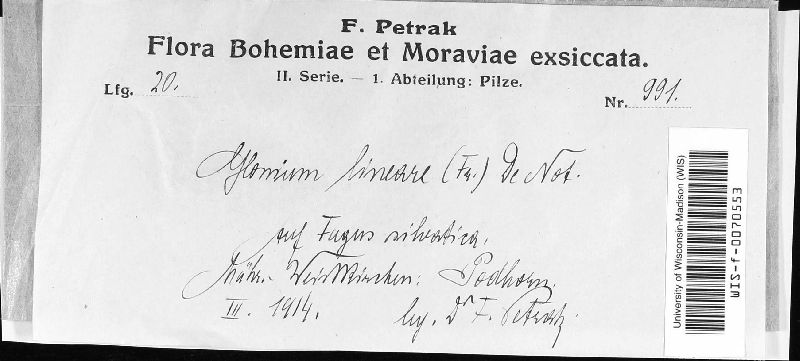 F. Petrak
Flora Bohemiae et Moraviae exsiccata.
II. Serie. — 1. Abteilung: Pilze.
Lfg. 20.
Nr. 991.
Glonium lineare (Fr.) De Not.
auf Fagus silvatica.
Mähr.- Weisskirchen: Podhorn.
III. 1914. leg. Dr F. Petrak
University of Wisconsin-Madison (WIS)
WIS-f-0070553